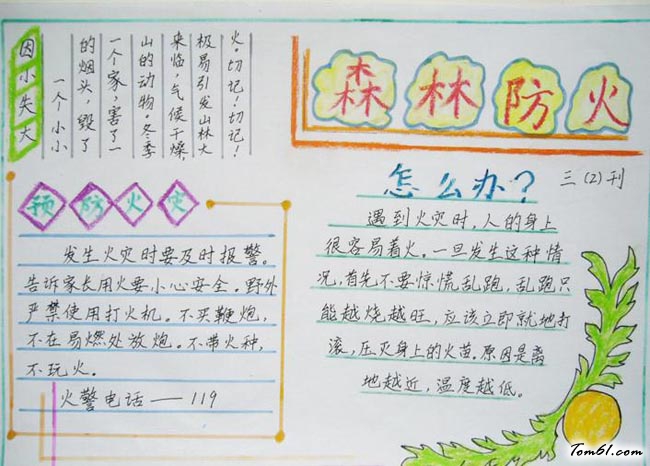 森林防火
三(2)刊
因小失大
一个小小
的烟头,毁了
一个家,害了一
山的动物。冬季
来临,气候干燥,
极易引发山林大
火。切记!切记!
预防火灾
发生火灾时要及时报警。
告诉家长用火要小心安全。野外
严禁使用打火机。不买鞭炮,
不在易燃处放炮。不带火种,
不玩火。
火警电话——119
怎么办?
遇到火灾时,人的身上
很容易着火。一旦发生这种情
况,首先不要惊慌乱跑,乱跑只
能越烧越旺,应该立即就地打
滚,压灭身上的火苗.原因是离
地越近,温度越低。
Tom61.com